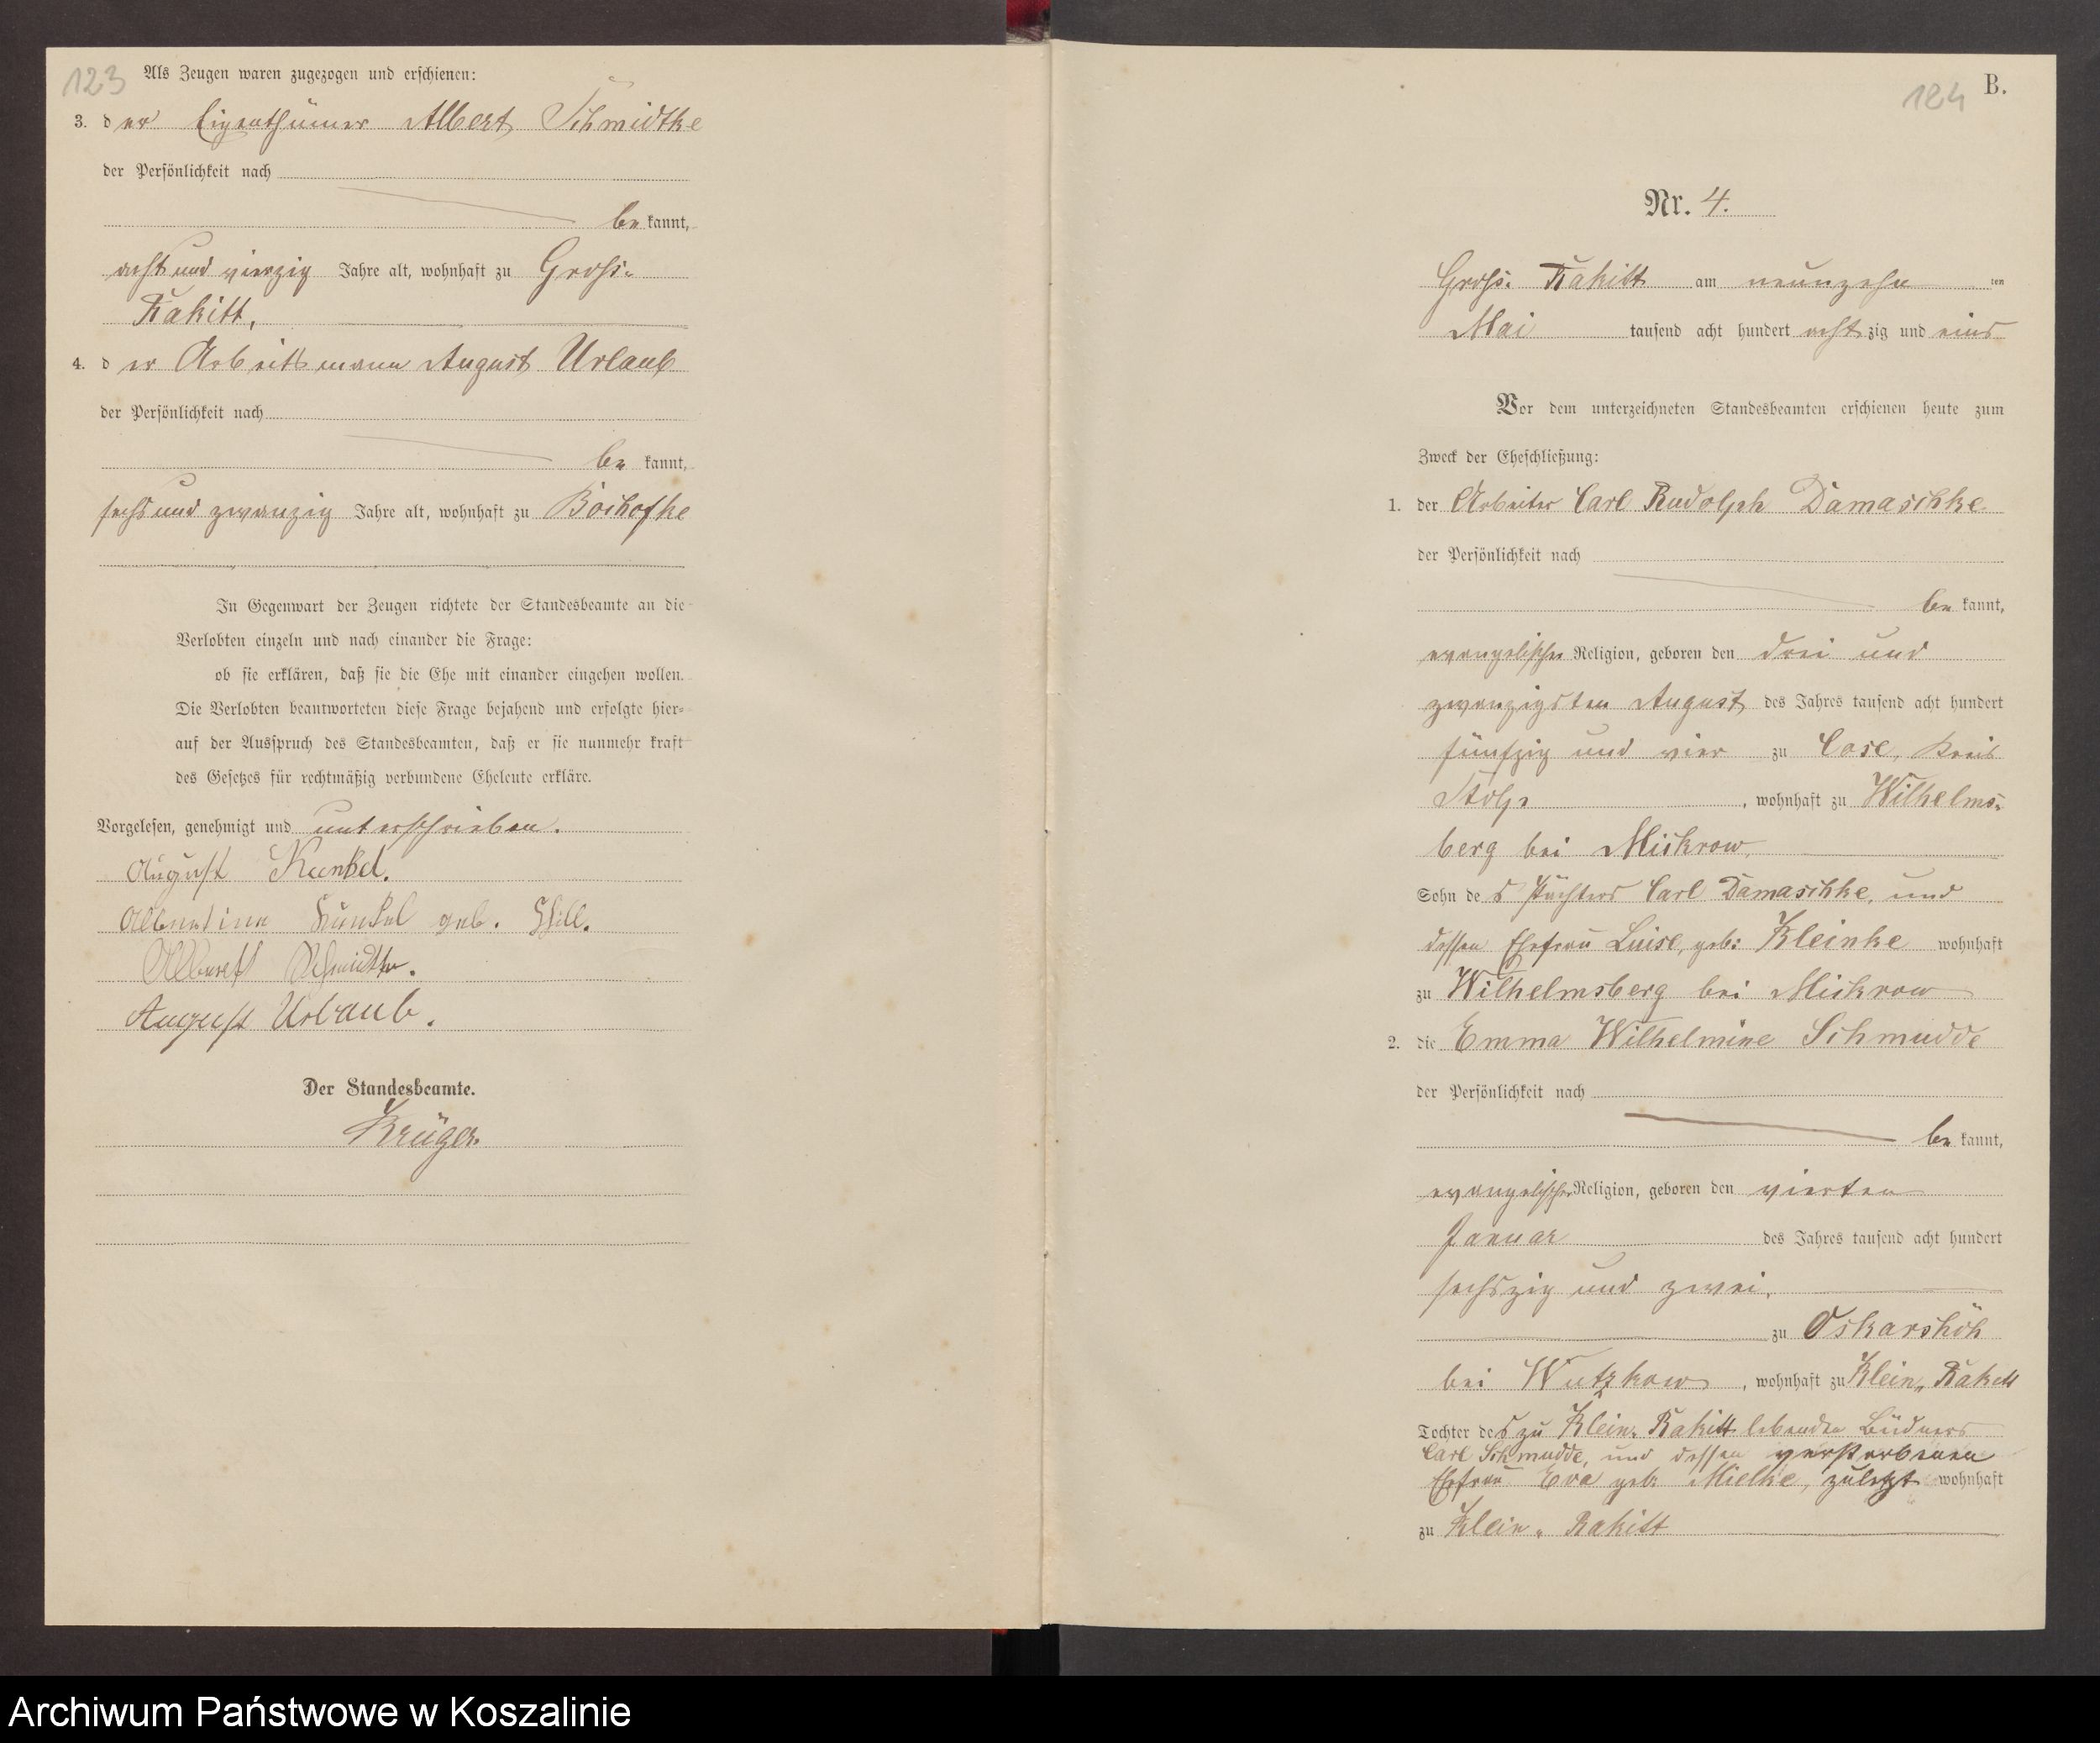 123
Als Zeugen waren zugezogen und erschienen:
3. der Eigenthümer Albert Schmidtke
der Persönlichkeit nach
bekannt,
acht und vierzig Jahre alt, wohnhaft zu Gross-
Rakitt,
4. der Arbeitsmann August Urlaub
der Persönlichkeit nach
be kannt,
sechs und zwanzig Jahre alt, wohnhaft zu
In Gegenwart der Zeugen richtete der Standesbeamte an die
Verlobten einzeln und nach einander die Frage:
ob sie erklären, daß sie die Ehe mit einander eingehen wollen.
Die Verlobten beantworteten diese Frage bejahend und erfolgte hier-
auf der Ausspruch des Standesbeamten, daß er sie nunmehr kraft
des Gesetzes für rechtmäßig verbundene Eheleute erkläre.
Vorgelesen, genehmigt und unterschrieben.
August Kunkel.
Albertine Kunkel geb.
Albert Schmidtke.
August Urlaub.
Der Standesbeamte.
Krüger.
124
B.
Nr. 4.
Gross-Rakitt am neunzehn ten
Mai tausend acht hundert achtzig und eins
Vor dem unterzeichneten Standesbeamten erschienen heute zum
Zweck der Eheschließung:
1. der Arbeiter Carl Rudolph Damaschke
der Persönlichkeit nach
be kannt,
evangelischer Religion, geboren den drei und
zwanzigsten August des Jahres tausend acht hundert
fünfzig und vier zu Cose, Kreis
Stolp, wohnhaft zu Wilhelms-
berg bei Mickrow,
Sohn des Pächters Carl Damaschke, und
dessen Ehefrau Luise, geb: Kleinke wohnhaft
zu Wilhelmsberg bei Mickrow
2. die Emma Wilhelmine Schmudde
der Persönlichkeit nach
be kannt,
evangelischer Religion, geboren den vierten
Januar des Jahres tausend acht hundert
sechszig und zwei,
zu Oskarshöh
bei Wutzkow, wohnhaft zu Klein-Rakitt
Tochter des zu Klein-Rakitt lebenden Büdners
Carl Schmudde, und dessen verstorbenen
Ehefrau Eva geb: Mielke, zuletzt wohnhaft
zu Klein-Rakitt
Archiwum Państwowe w Koszalinie